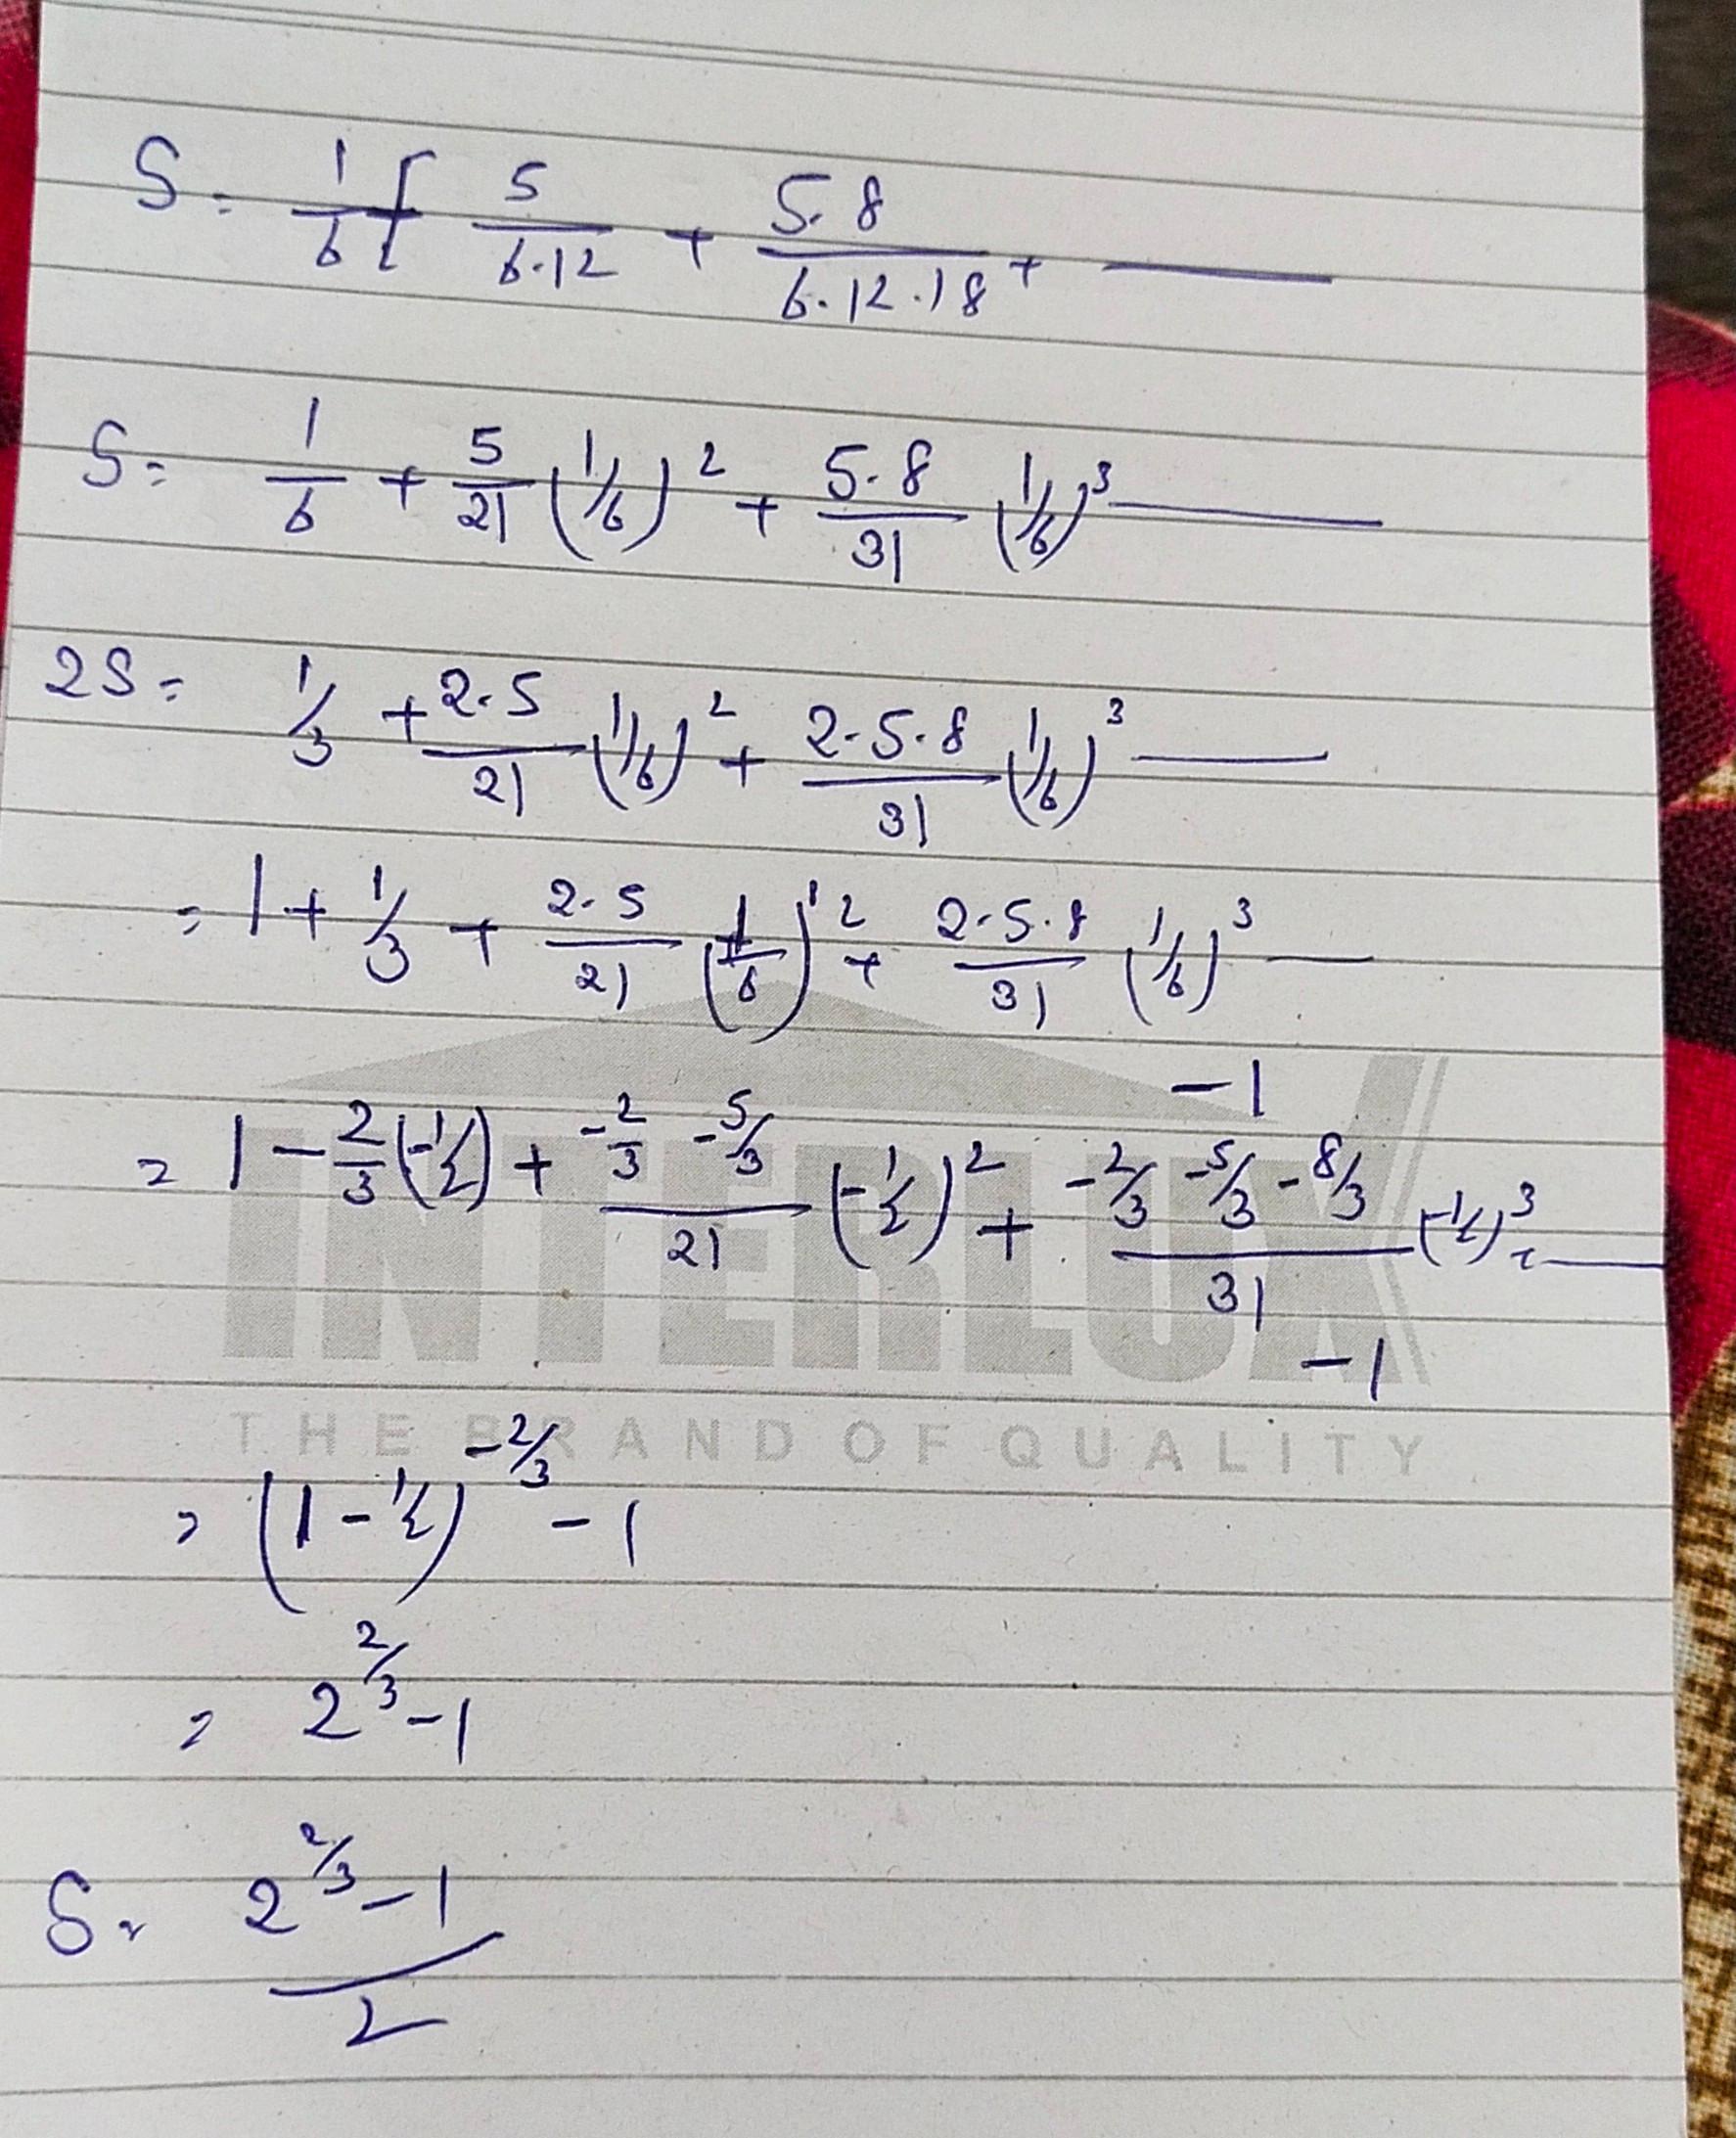 S = 1/6 [ 5/6.12 + 5.8/6.12.18 + ———
S = 1/6 + 5/2! (1/6)² + 5.8/3! (1/6)³ ———
2S = 1/3 + 2.5/2! (1/6)² + 2.5.8/3! (1/6)³ ———
= 1 + 1/3 + 2.5/2! (1/6)² + 2.5.8/3! (1/6)³ — -1
= 1 - 2/3 (-1/2) + -2/3 -5/3 / 2! (-1/2)² + -2/3 -5/3 -8/3 / 3! (-1/2)³ —— -1
INTERLUX
THE BRAND OF QUALITY
= (1 - 1/2)^-2/3 - 1
= 2^2/3 - 1
S = 2^2/3 - 1 / 2